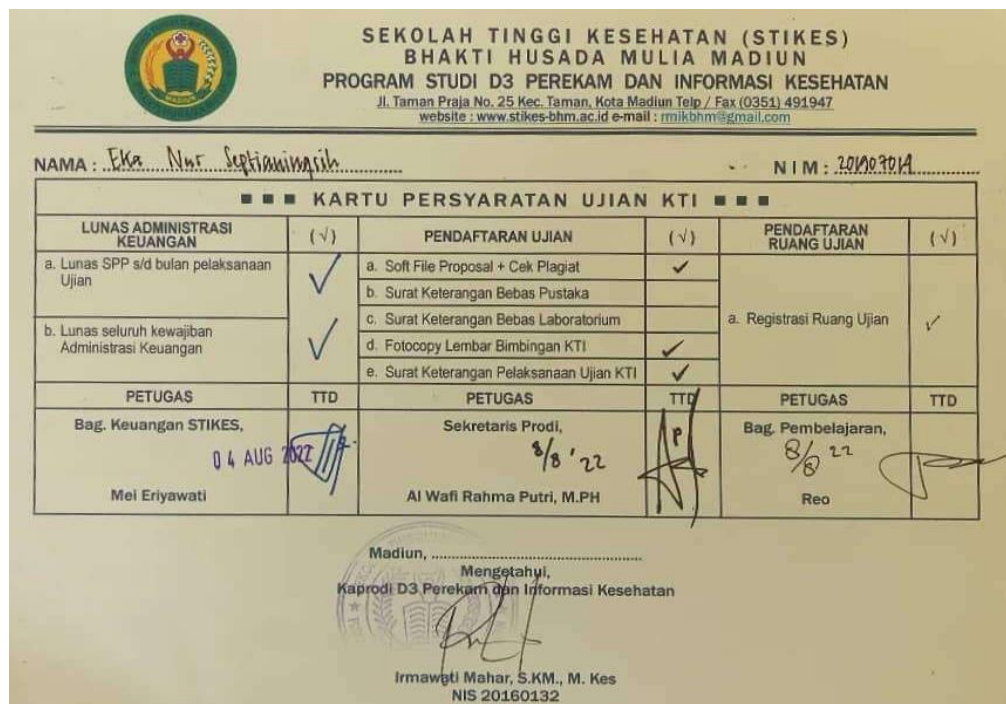 SEKOLAH TINGGI KESEHATAN (STIKES)
BHAKTI HUSADA MULIA MADIUN
PROGRAM STUDI D3 PEREKAM DAN INFORMASI KESEHATAN
Jl. Taman Praja No. 25 Kec. Taman, Kota Madiun Telp / Fax (0351) 491947
website : www.stikes-bhm.ac.id e-mail : rmikbhm@gmail.com
NAMA : Eka Nur Septianingsih
NIM : 201907019
KARTU PERSYARATAN UJIAN KTI
LUNAS ADMINISTRASI KEUANGAN (√) PENDAFTARAN UJIAN (√) PENDAFTARAN RUANG UJIAN (√)
a. Lunas SPP s/d bulan pelaksanaan Ujian ✓
b. Lunas seluruh kewajiban Administrasi Keuangan ✓
a. Soft File Proposal + Cek Plagiat ✓
b. Surat Keterangan Bebas Pustaka
c. Surat Keterangan Bebas Laboratorium
d. Fotocopy Lembar Bimbingan KTI ✓
e. Surat Keterangan Pelaksanaan Ujian KTI ✓
a. Registrasi Ruang Ujian ✓
PETUGAS TTD PETUGAS TTD PETUGAS TTD
Bag. Keuangan STIKES,
04 AUG 2022
Mei Eriyawati
Sekretaris Prodi,
8/8 '22
Al Wafi Rahma Putri, M.PH
Bag. Pembelajaran,
8/8 22
Reo
Madiun, ................................................
Mengetahui,
Kaprodi D3 Perekam dan Informasi Kesehatan
Irmawati Mahar, S.KM., M. Kes
NIS 20160132